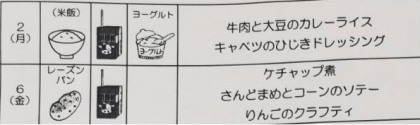 2
(月)
(米飯)
ヨーグルト
ヨーグルト
牛肉と大豆のカレーライス
キャベツのひじきドレッシング
6
(金)
レーズン
パン
ケチャップ煮
さんどまめとコーンのソテー
りんごのクラフティ